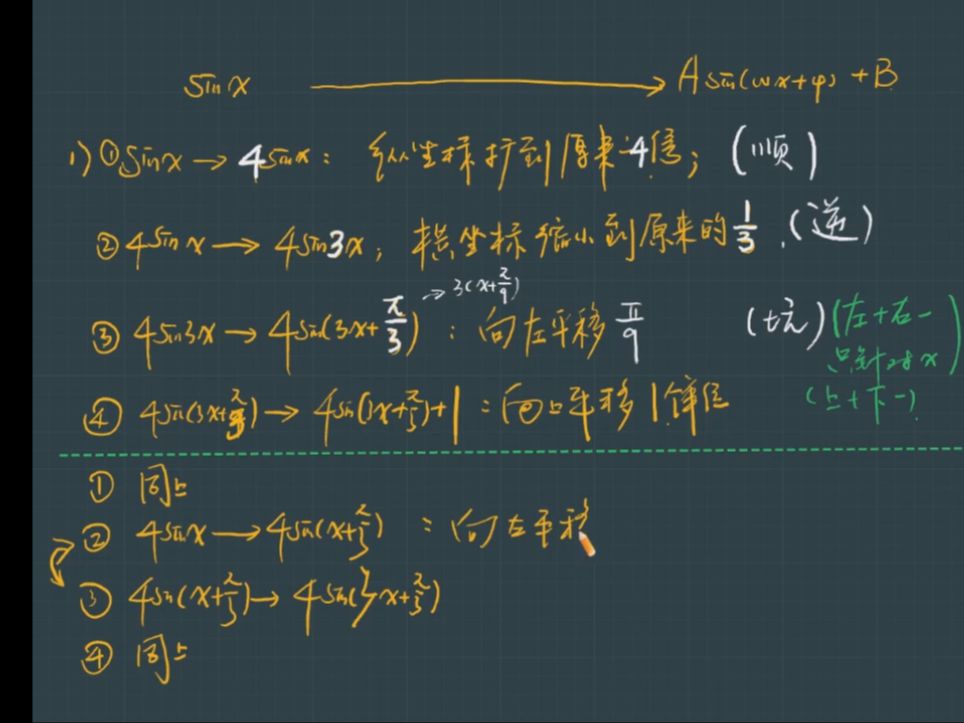 sin x → A sin(ωx+φ) + B
1) ① sin x → 4 sin x : 纵坐标扩到原来4倍; (顺)
② 4 sin x → 4 sin 3x ; 横坐标缩小到原来的 1/3 . (逆)
→ 3(x+π/9)
③ 4 sin 3x → 4 sin(3x+π/3) : 向左平移 π/9 (左+右-
只针对x)
④ 4 sin(3x+π/3) → 4 sin(3x+π/3)+1 : 向上平移1个单位 (上+下-)
① 同上
② 4 sin x → 4 sin(x+π/3) : 向左平移
③ 4 sin(x+π/3) → 4 sin(3x+π/3)
④ 同上